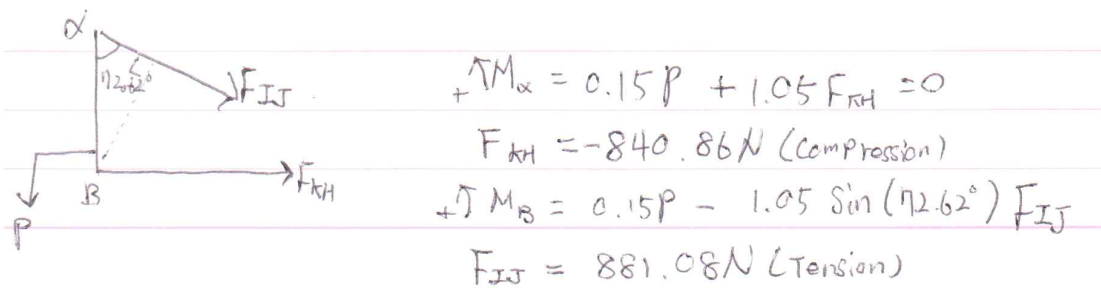 α
72.62°
F_IJ
P
B
F_KH
+↑M_α = 0.15P + 1.05 F_KH = 0
F_KH = -840.86N (Compression)
+↑M_B = 0.15P - 1.05 Sin(72.62°) F_IJ
F_IJ = 881.08N (Tension)